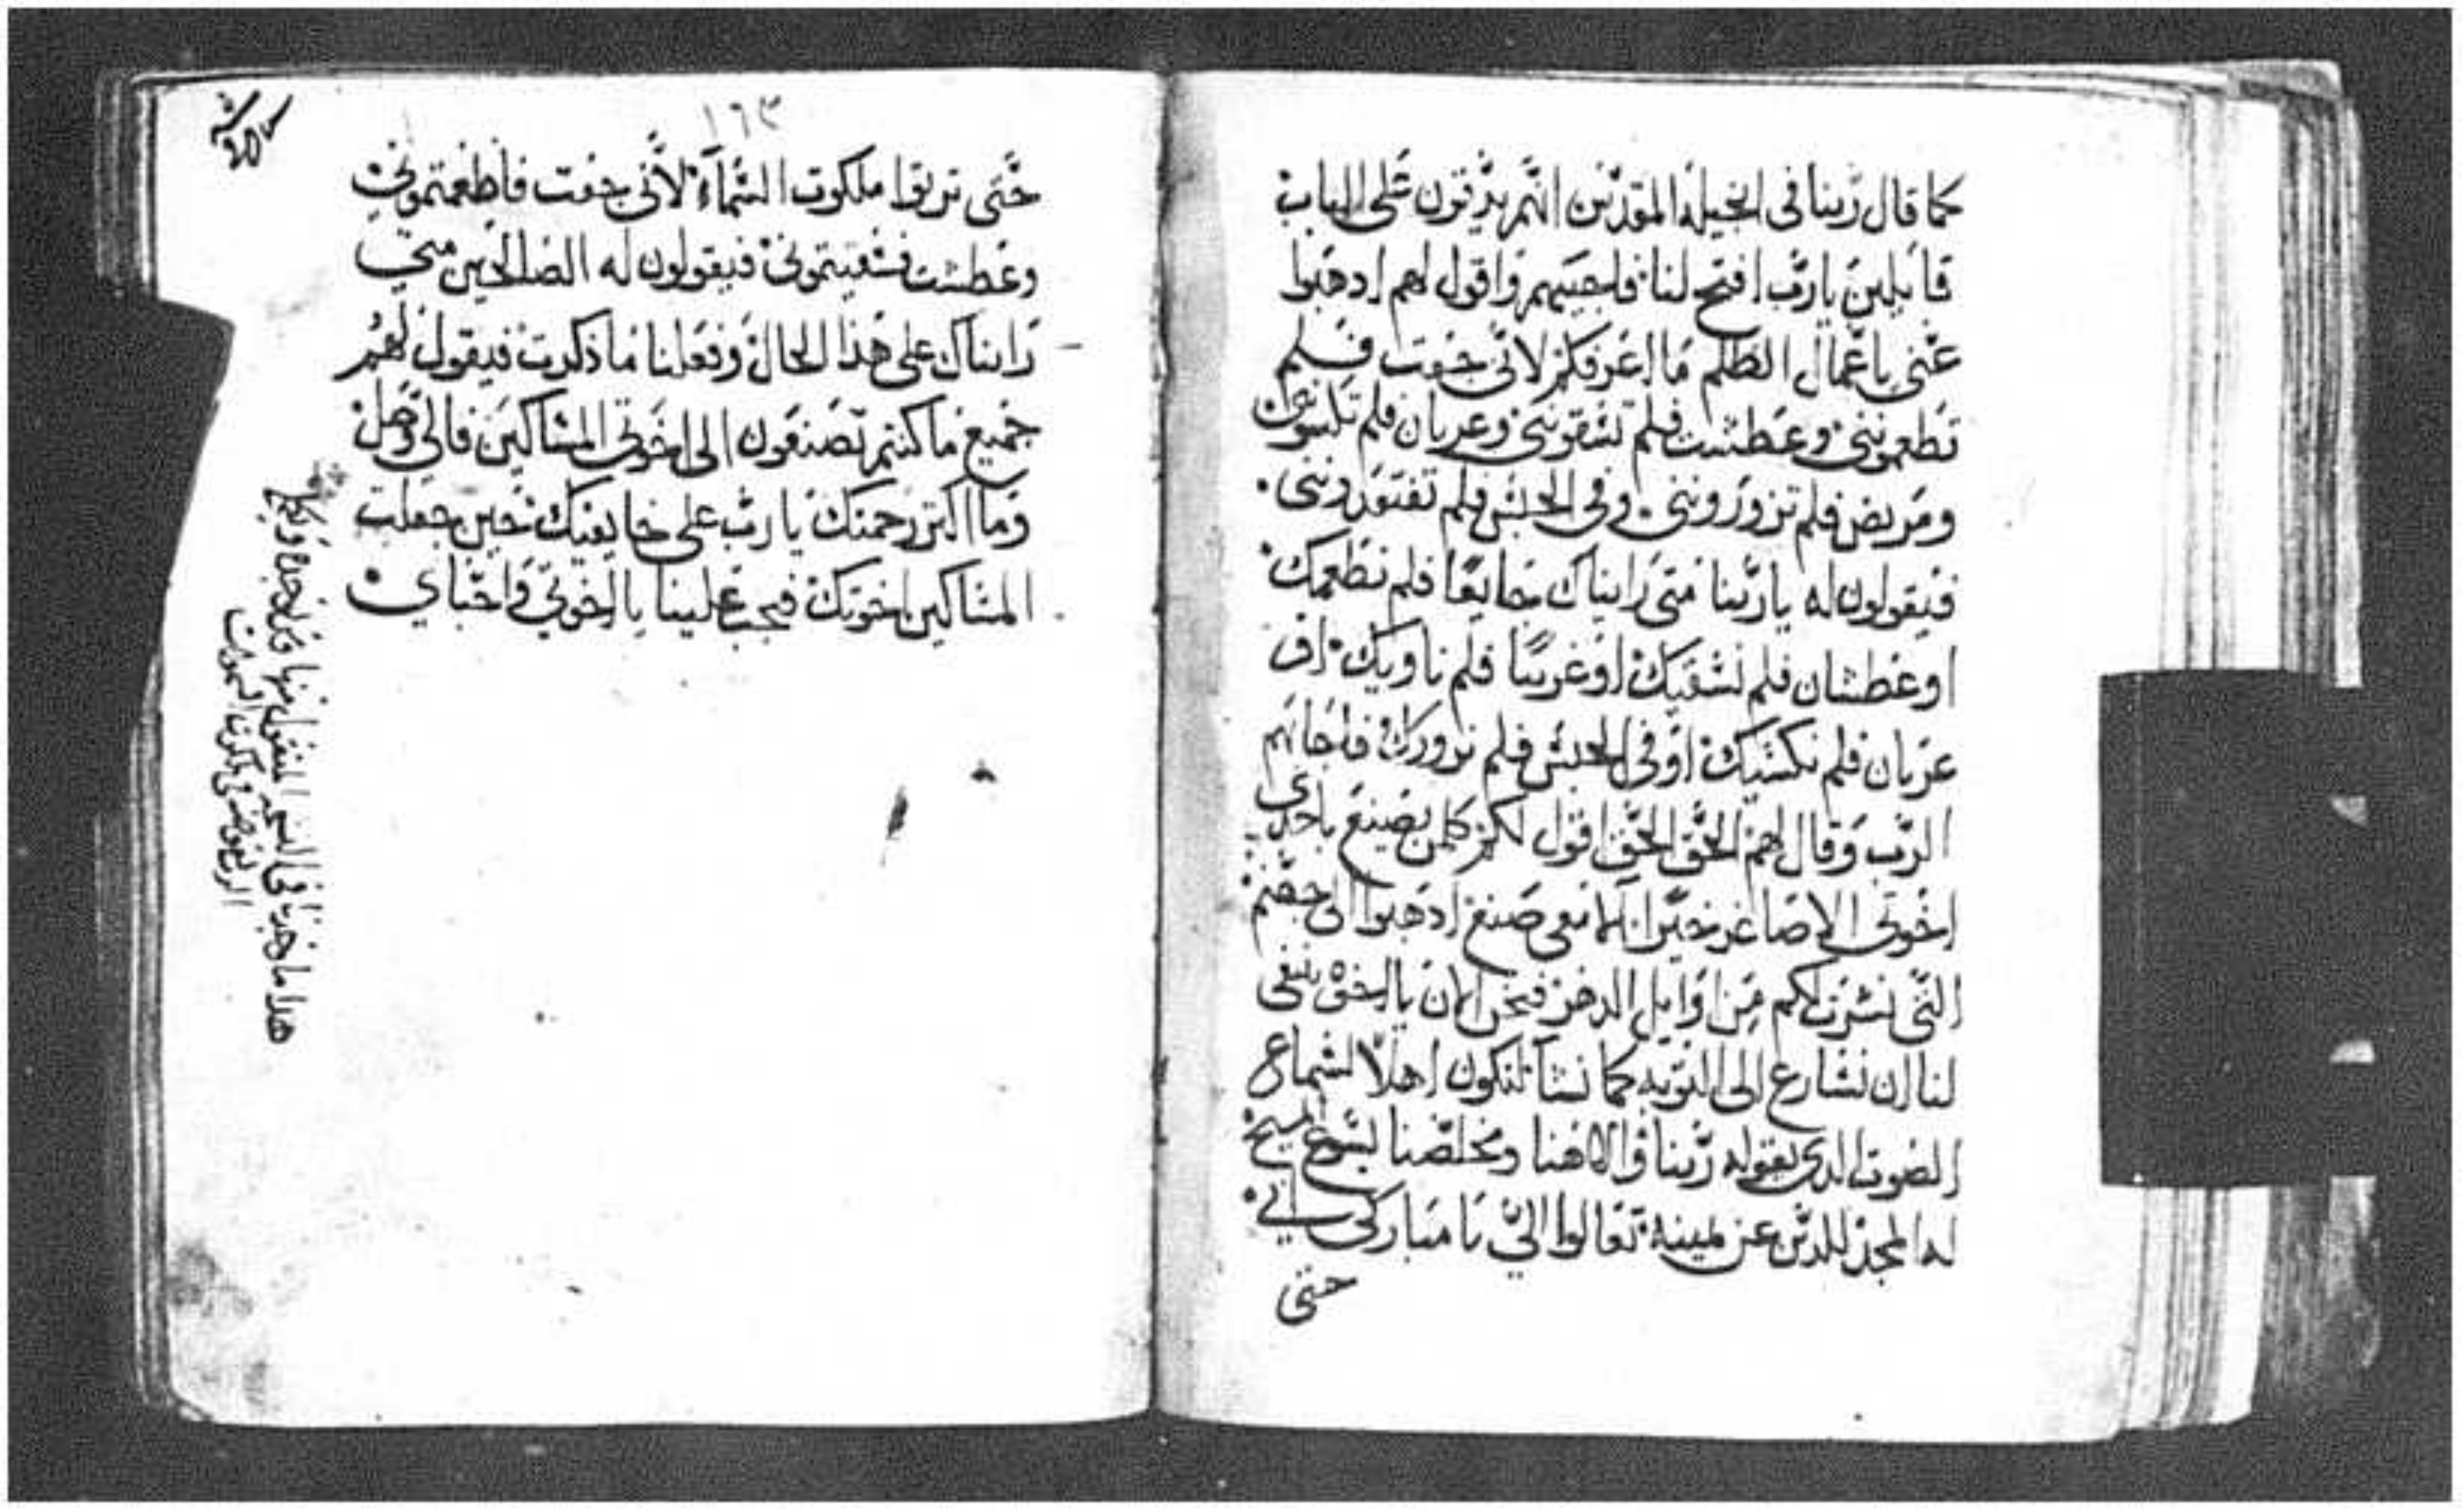 كما قال ربنا في انجيله المقدس انهم يدقون على الباب
قايلين يارب افتح لنا فاجيبهم واقول لهم ادهبوا
عني ياعمال الظلم ما اعرفكم لاني جعت فلم
تطعموننى وعطشت فلم تسقوننى وعريان فلم تكسوننى
ومريض فلم تزوروننى وفي الحبس فلم تفتقدوننى
فيقولون له ياربنا متى رايناك جايعا فلم نطعمك
او عطشان فلم نسقيك او غريبا فلم ناويك او
عريان فلم نكسيك او في الحبس فلم نزورك فاجابهم
الرب وقال لهم الحق الحق اقول لكم كلمن يصنع باحدى
اخوتى الاصاغر خيرا انما معي صنع ادهبوا الى جهنم
التى لكم من اوايل الدهر فنحن الان يا اخوة ينبغي
لنا ان نسارع الى التوبه كما نشأ لنكون اهلا لسماع
الصوت الدى يقوله ربنا والاهنا ومخلصنا يسوع المسيح
له المجد للدين عن يمينه تعالوا اليّ يا مباركي ابي
حتى
١٦٣
حتى تريوا ملكوت السماء لانى جعت فاطعمتمونى
وعطشت فسقيتمونى فيقولون له الصالحين متى
رايناك على هذا الحال وفعلنا ما ذكرت فيقول لهم
جميع ما كنتم تصنعون الى اخوتى المساكين فالى وصل
وما اكتر رحمتك يا رب على خايفيك حين جعلت
المساكين اخوتك فيجب علينا يا اخوتي واحباي
هدا ما وجدنا في النسخه المنقول منها